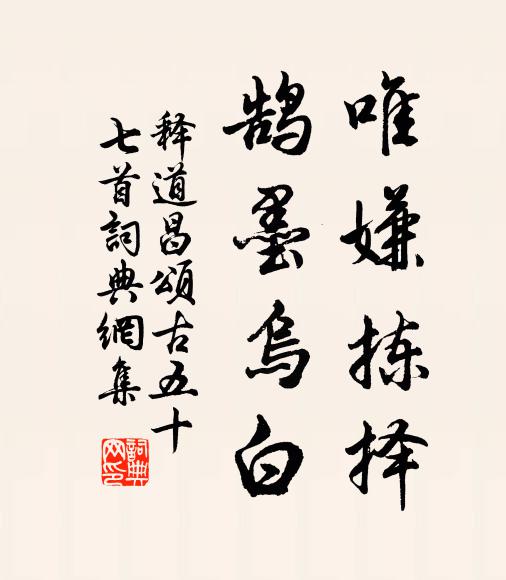 唯嫌拣择
鹄墨乌白
释道昌颂古五十
七首詞典網集
詞典
网印